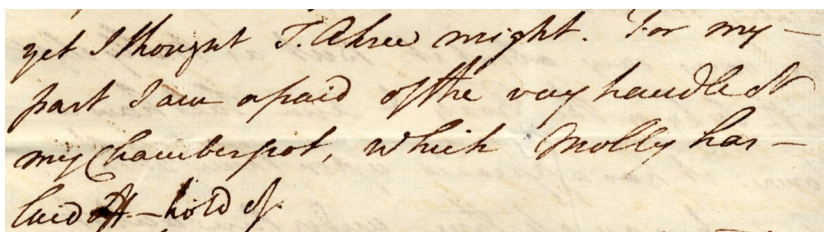 yet I thought T. Ahree might. For my —
part I am afraid of the very handle of
my Chamberpot, which Molly has —
laid — hold of.